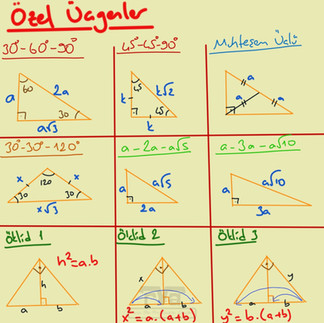 Özel Üçgenler
30°-60°-90°
60
a
2a
30
a√3
45°-45°-90°
45
k
k√2
45
k
Muhteşem Üçlü
a
a
a
30°-30°-120°
x
120
x
30
30
x√3
a-2a-a√5
a
a√5
2a
a-3a-a√10
a
a√10
3a
Öklid 1
h²=a.b
h
a
b
Öklid 2
x
a
b
x²=a.(a+b)
Öklid 3
y
a
b
y²=b.(a+b)